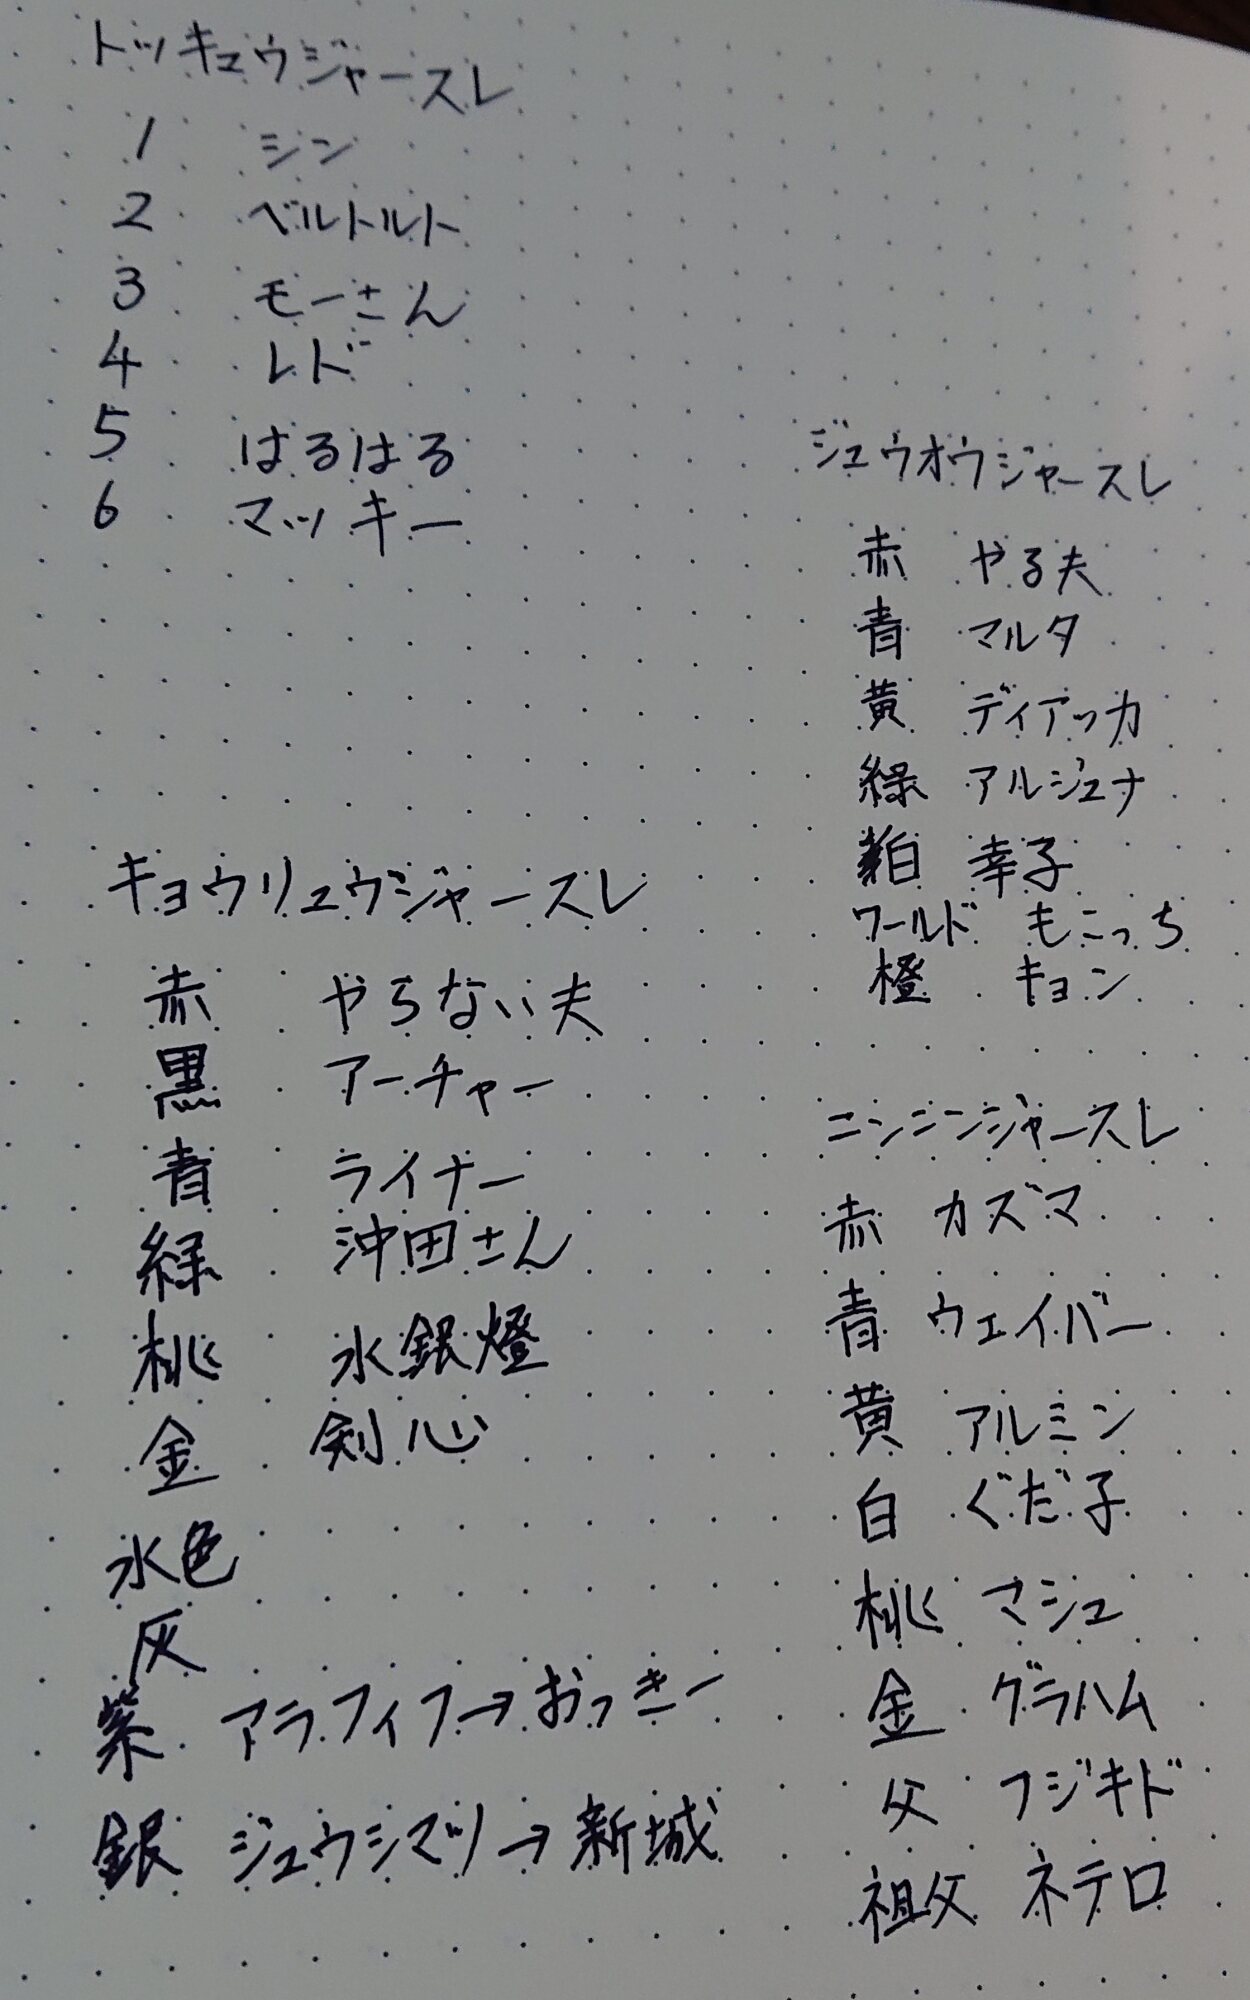 トッキュウジャースレ
1 シン
2 ベルトルト
3 モーさん
4 レド
5 はるはる
6 マッキー
キョウリュウジャースレ
赤 やらない夫
黒 アーチャー
青 ライナー
緑 沖田さん
桃 水銀燈
金 剣心
水色
灰
紫 アラフィフ→おっきー
銀 ジュウシマツ→新城
ジュウオウジャースレ
赤 やる夫
青 マルタ
黄 ディアッカ
緑 アルジュナ
白 幸子
ワールド もこっち
橙 キョン
ニンニンジャースレ
赤 カズマ
青 ウェイバー
黄 アルミン
白 ぐだ子
桃 マシュ
金 グラハム
父 フジキド
祖父 ネテロ